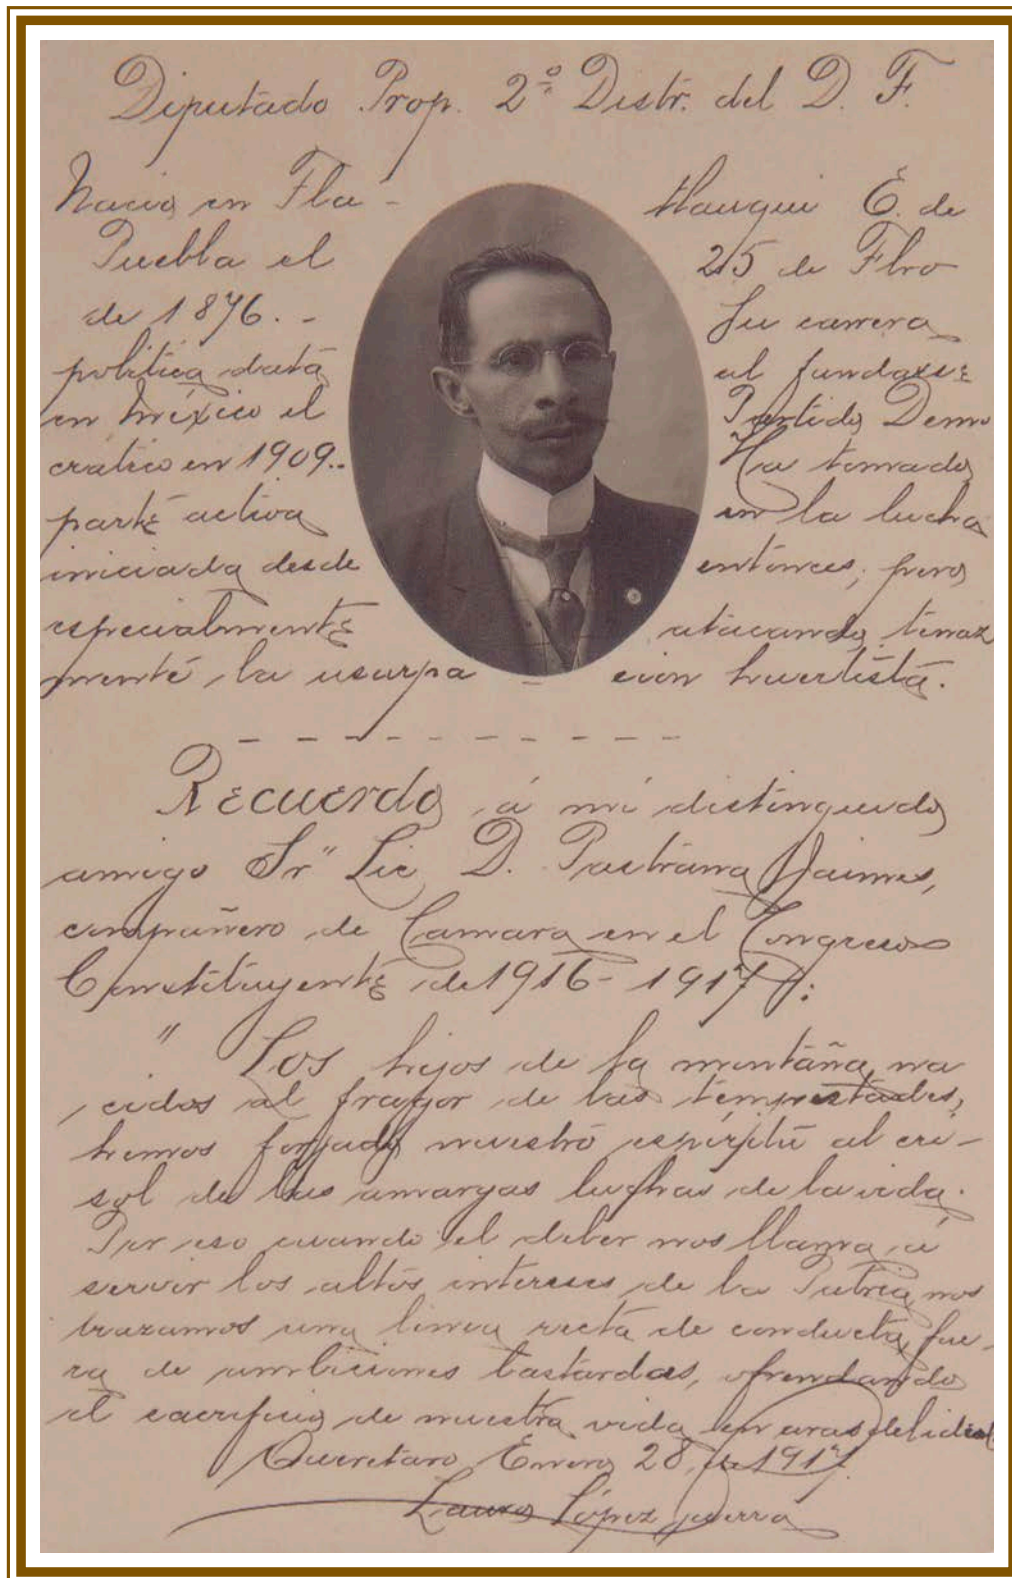 Diputado Prop. 2º Distr. del D. F.
Nació en Tla- tlauqui E. de
Puebla el 25 de Fbro
de 1876. - Su carrera
politica data al fundarse
en México el Partido Demo
cratico en 1909.. Ha tomado
parte activa en la lucha
iniciada desde entónces; pero
especialmente atacando tenaz
mente la usurpa - cion huertista.
Recuerdo á mi distinguido
amigo Sr" Lic D. Pastrana Jaimes,
compañero de Camara en el Congreso
Constituyente de 1916 - 1917:
" Los hijos de la montaña na
cidos al fragor de las tempestades,
hemos forjado nuestro espíritu al cri-
sol de las amargas luchas de la vida.
Por eso cuando el deber nos llama á
servir los altos intereses de la Patria nos
trazamos una linea recta de conducta fue-
ra de ambiciones bastardas, ofrendando
el sacrificio de nuestra vida en aras del ideal
Queretaro Enero 28 de 1917.
Lauro López Guerra